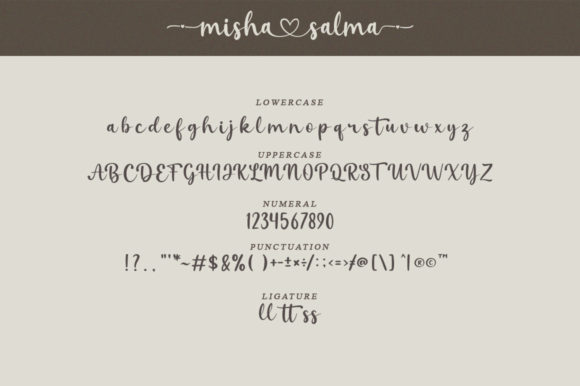 misha salma
LOWERCASE
abcdefghijklmnopqrstuvwxyz
UPPERCASE
ABCDEFGHIJKLMNOPQRSTUVWXYZ
NUMERAL
1234567890
PUNCTUATION
!?..,"'*~#$&%( )+-±×÷/:;<=>≠@[\]^|®©™
LIGATURE
ll tt ss